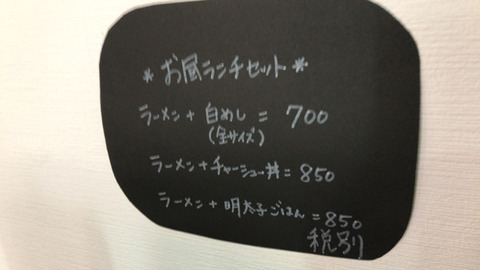 *お風ランチセット*
ラーメン+白めし=700
(全サイズ)
ラーメン+チャーシュー丼=850
ラーメン+明太子ごはん=850
税別